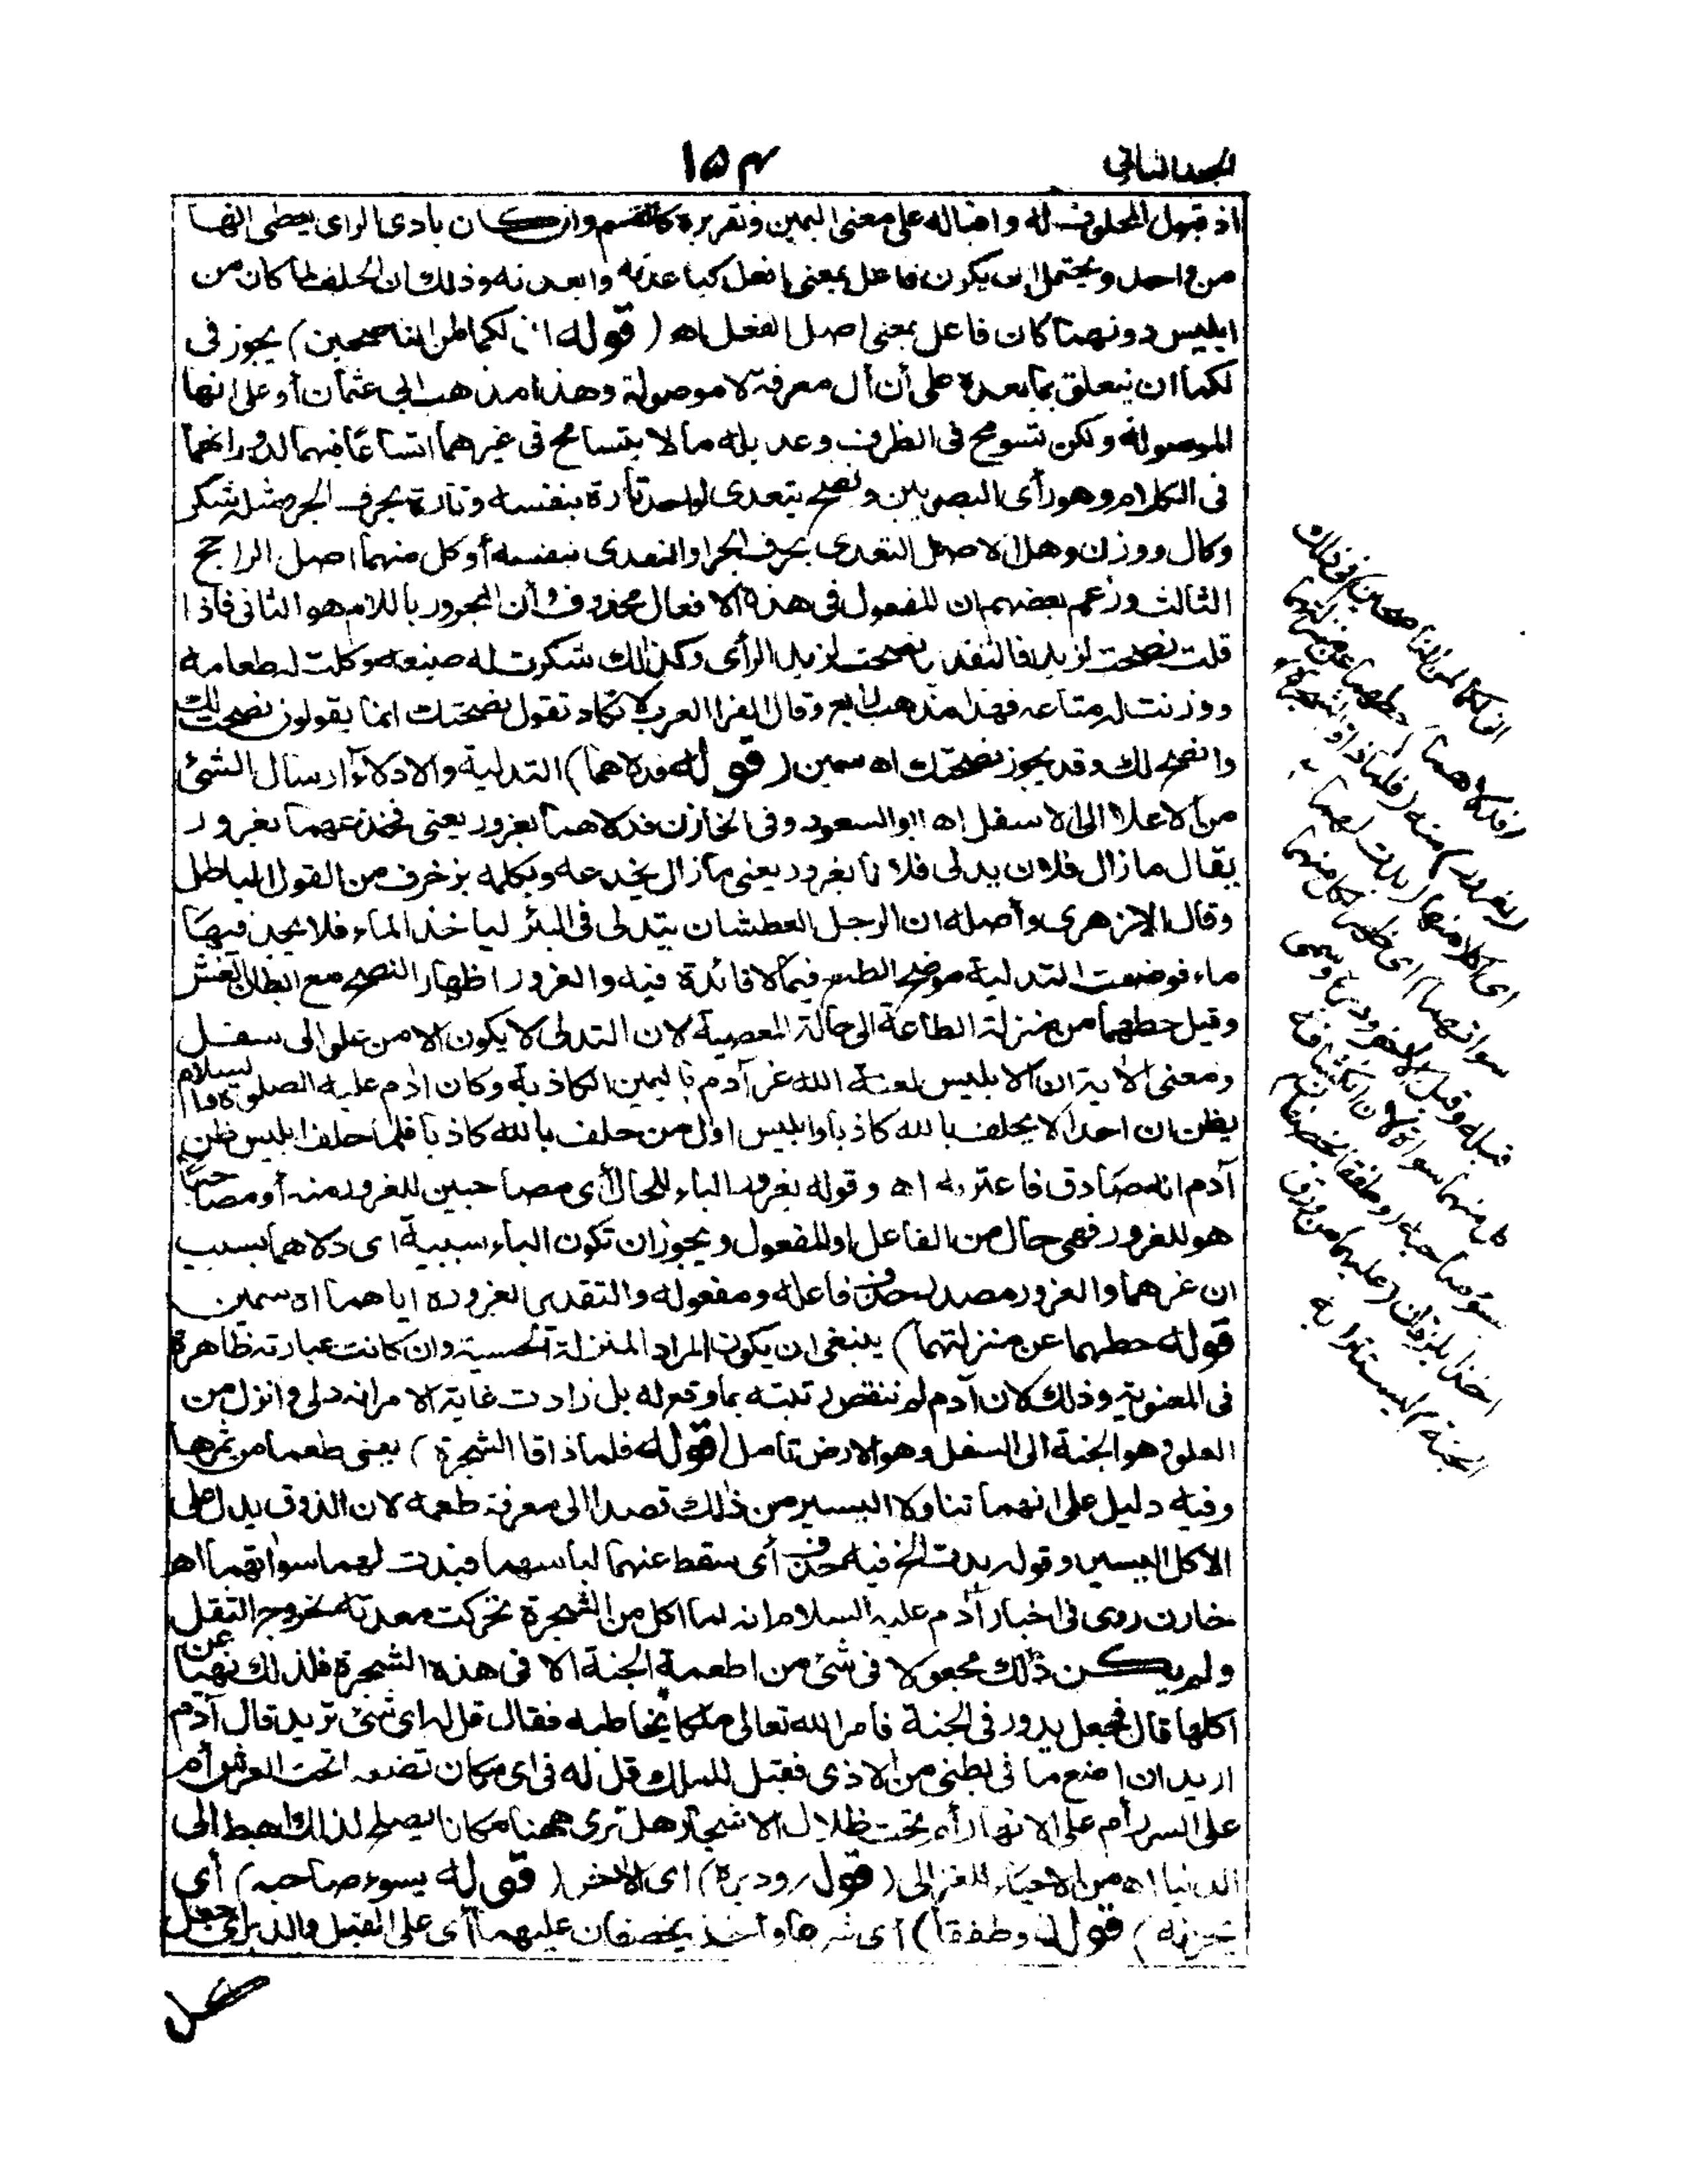 الجلد الثانى
١٥٣
اذ قبول المحلوف له واقباله على معنى اليمين وتقريره كالقسم وان كان بادى الراى يعطى انها
من واحد ويحتمل ان يكون فاعل بمعنى افعل كباعدته وابعدته وذلك ان الحلف لما كان من
ابليس دونهما كان فاعل بمعنى اصل الفعل اه (قوله انى لكما لمن الناصحين) يجوز فى
لكما ان يتعلق بما بعده على أن أل معرفة لا موصولة وهذا مذهب ابى عثمان أو على انها
الموصولة ولكن تسومح فى الظرف وعديله ما لا يتسامح فى غيرهما اتساعا فيهما لدورانهما
فى الكلام وهو رأى البصريين ونصح يتعدى لواحد تارة بنفسه وتارة بحرف الجر مثله شكر
وكال ووزن وهل الاصل التعدى بحرف الجر او التعدى بنفسه أو كل منهما اصل الراجح
الثالث وزعم بعضهم ان المفعول فى هذه الافعال محذوف وأن المجرور باللام هو الثانى فاذا
قلت نصحت لزيد فالتقدير نصحت لزيد الرأى وكذلك شكرت له صنيعه وكلت له طعامه
ووزنت له متاعه فهذا مذهب رابع وقال الفرا العرب لا تكاد تقول نصحتك انما يقولون نصحت لك
وانصح لك وقد يجوز نصحتك اه سمين (قوله فدلاهما) التدلية والادلاء ارسال الشئ
من الاعلا الى الاسفل اه ابو السعود وفى الخازن فدلاهما بغرور يعنى فخدعهما بغرور
يقال ما زال فلان يدلى فلانا بغرور يعنى ما زال يخدعه ويكلمه بزخرف من القول الباطل
وقال الازهرى وأصله ان الرجل العطشان يتدلى فى البئر لياخذ الماء فلا يجد فيها
ماء فوضعت التدلية موضع الطمع فيما لا فائدة فيه والغرور اظهار النصح مع ابطان الغش
وقيل حطهما من منزلة الطاعة الى حالة المعصية لان التدلى لا يكون الا من علو الى سفل
ومعنى الاية ان ابليس لعنه الله غر آدم باليمين الكاذبة وكان ادم عليه الصلوة والسلام
يظن ان احدا لا يحلف بالله كاذبا وابليس اول من حلف بالله كاذبا فلما حلف ابليس ظن
آدم انه صادق فاغتر به اه وقوله بغرور الباء للحال أى مصاحبين للغرور منه أو مصاحبا
هو للغرور فهى حال من الفاعل او المفعول ويجوز ان تكون الباء سببية اى دلاهما بسبب
ان غرهما والغرور مصدر حذف فاعله ومفعوله والتقدير بغروره اياهما اه سمين
قوله حطهما عن منزلتهما) ينبغى ان يكون المراد المنزلة الحسية وان كانت عبارته ظاهرة
فى المعنوية وذلك لان آدم لم تنقص رتبته بما وقع له بل زادت غاية الامر انه دلى وانزل من
العلو وهو الجنة الى السفل وهو الارض تأمل (قوله فلما ذاقا الشجرة) يعنى طعما من ثمرها
وفيه دليل على انهما تناولا اليسير من ذلك قصدا الى معرفة طعمه لان الذوق يدل على
الاكل اليسير وقوله بدت الخ فيه حذف أى سقط عنهما لباسهما فبدت لهما سواتهما اه
خازن روى فى اخبار آدم عليه السلام انه لما اكل من الشجرة تحركت معدته لخروج الثفل
ولم يكن ذلك مجعولا فى شئ من اطعمة الجنة الا فى هذه الشجرة فلذلك نهيا عن
اكلها قال فجعل يدور فى الجنة فامر الله تعالى ملكا يخاطبه فقال قل له اى شئ تريد قال آدم
اريد ان اضع ما فى بطنى من الاذى فقيل للملك قل له فى اى مكان تضعه اتحت العرش أم
على السرر أم على الانهار أم تحت ظلال الاشجار هل ترى ههنا مكانا يصلح لذلك اهبط الى
الدنيا اه من الاحياء للغزالى (قوله ودبره) اى الاخر (قوله يسوء صاحبه) أى
يحزنه (قوله وطفقا) أى شرعا وأخذ يخصفان عليهما أى على القبل والدبر اى جعل
كل
انى لكما لمن الناصحين) فى ذلك
(فدلاهما) حطهما عن منزلتهما
(بغرور) منه (فلما ذاقا الشجرة)
اى اكلا منها (بدت لهما
سواتهما) اى ظهر لكل منهما
قبله وقبل الاخر ودبره وسمى
كل منهما سوأة لان انكشافه
يسوء صاحبه (وطفقا يخصفان)
اخذا يلزقان (عليهما من ورق
الجنة) ليستترا به